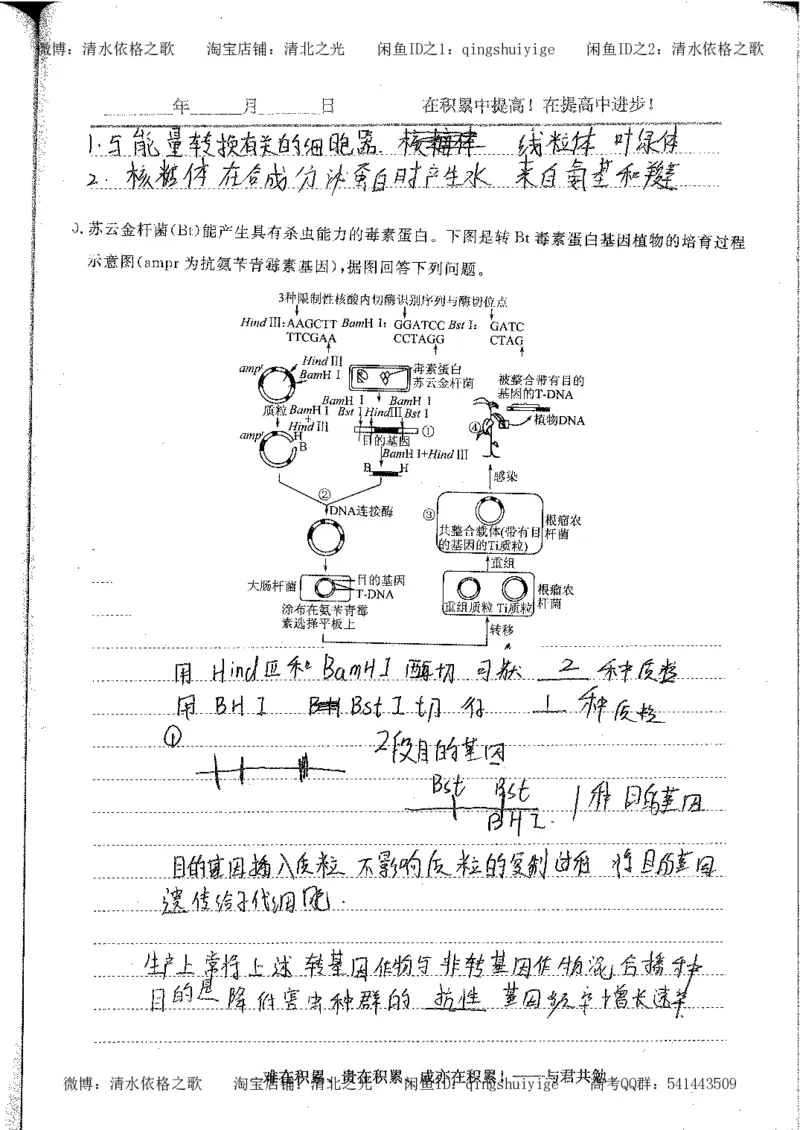 微博：清水依格之歌 淘宝店铺：清北之光 闲鱼ID之1：qingshuiyige 闲鱼ID之2：清水依格之歌
年 月 日 在积累中提高！在提高中进步！
1.与能量转换有关的细胞器. 线粒体 叶绿体
2. 核糖体在合成分泌蛋白时产生水 来自氨基和羧基
苏云金杆菌(Bt)能产生具有杀虫能力的毒素蛋白。下图是转 Bt 毒素蛋白基因植物的培育过程
示意图(ampr 为抗氨苄青霉素基因),据图回答下列问题。
3种限制性核酸内切酶识别序列与酶切位点
Hind Ⅲ:AAGCTT BamH Ⅰ: GGATCC Bst Ⅰ: GATC
TTCGAA CCTAGG CTAG
ampr Hind Ⅲ
BamH Ⅰ
质粒 BamH Ⅰ
+
Hind Ⅲ
ampr H
B
毒素蛋白
苏云金杆菌
BamH Ⅰ BamH Ⅰ
Bst Ⅰ HindⅢ Bst Ⅰ
①
目的基因
BamH Ⅰ+Hind Ⅲ
B H
②
DNA连接酶
大肠杆菌
目的基因
T-DNA
涂布在氨苄青霉
素选择平板上
被整合带有目的
基因的T-DNA
植物DNA
④
感染
③
共整合载体(带有目
的基因的Ti质粒)
根瘤农
杆菌
重组
重组质粒 Ti质粒
根瘤农
杆菌
转移
用 Hind Ⅲ 和 BamH Ⅰ 酶切 可获 2 种质粒
用 BH Ⅰ Bst Ⅰ 切 得 1 种质粒
① 2段目的基因
Bst Bst 1种目的基因
BHⅠ.
目的基因插入质粒 不影响质粒的复制过程 将目的基因
遗传给子代细胞.
生产上常将上述转基因作物与非转基因作物混合播种
目的是降低害虫种群的 抗性 基因频率增长速率
难在积累、贵在积累、成亦在积累！——与君共勉
微博：清水依格之歌 淘宝店铺：清北之光 闲鱼ID：qingshuiyige 高考QQ群：541443509